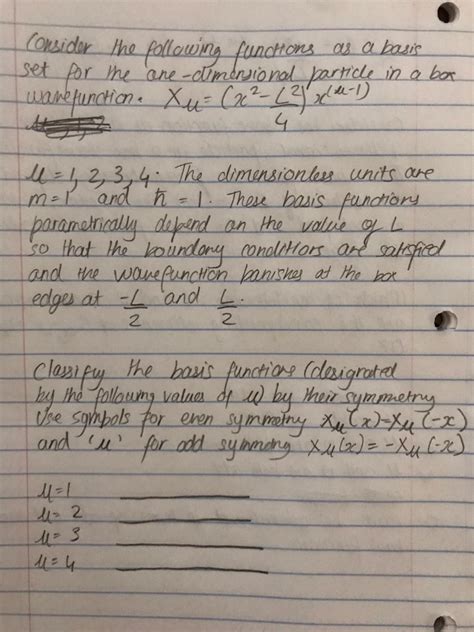 Consider the following functions as a basis
set for the one-dimensional particle in a box
wavefunction. Xμ = (x² - L²/4) x^(μ-1)
μ = 1, 2, 3, 4. The dimensionless units are
m=1 and ħ = 1. These basis functions
parametrically depend on the value of L
so that the boundary conditions are satisfied
and the wavefunction banishes at the box
edges at -L/2 and L/2.
Classify the basis functions (designated
by the following values of μ) by their symmetry
Use symbols for even symmetry Xμ(x)=Xμ(-x)
and 'u' for odd symmetry Xμ(x) = -Xμ(-x)
μ=1
μ= 2
μ= 3
μ= 4